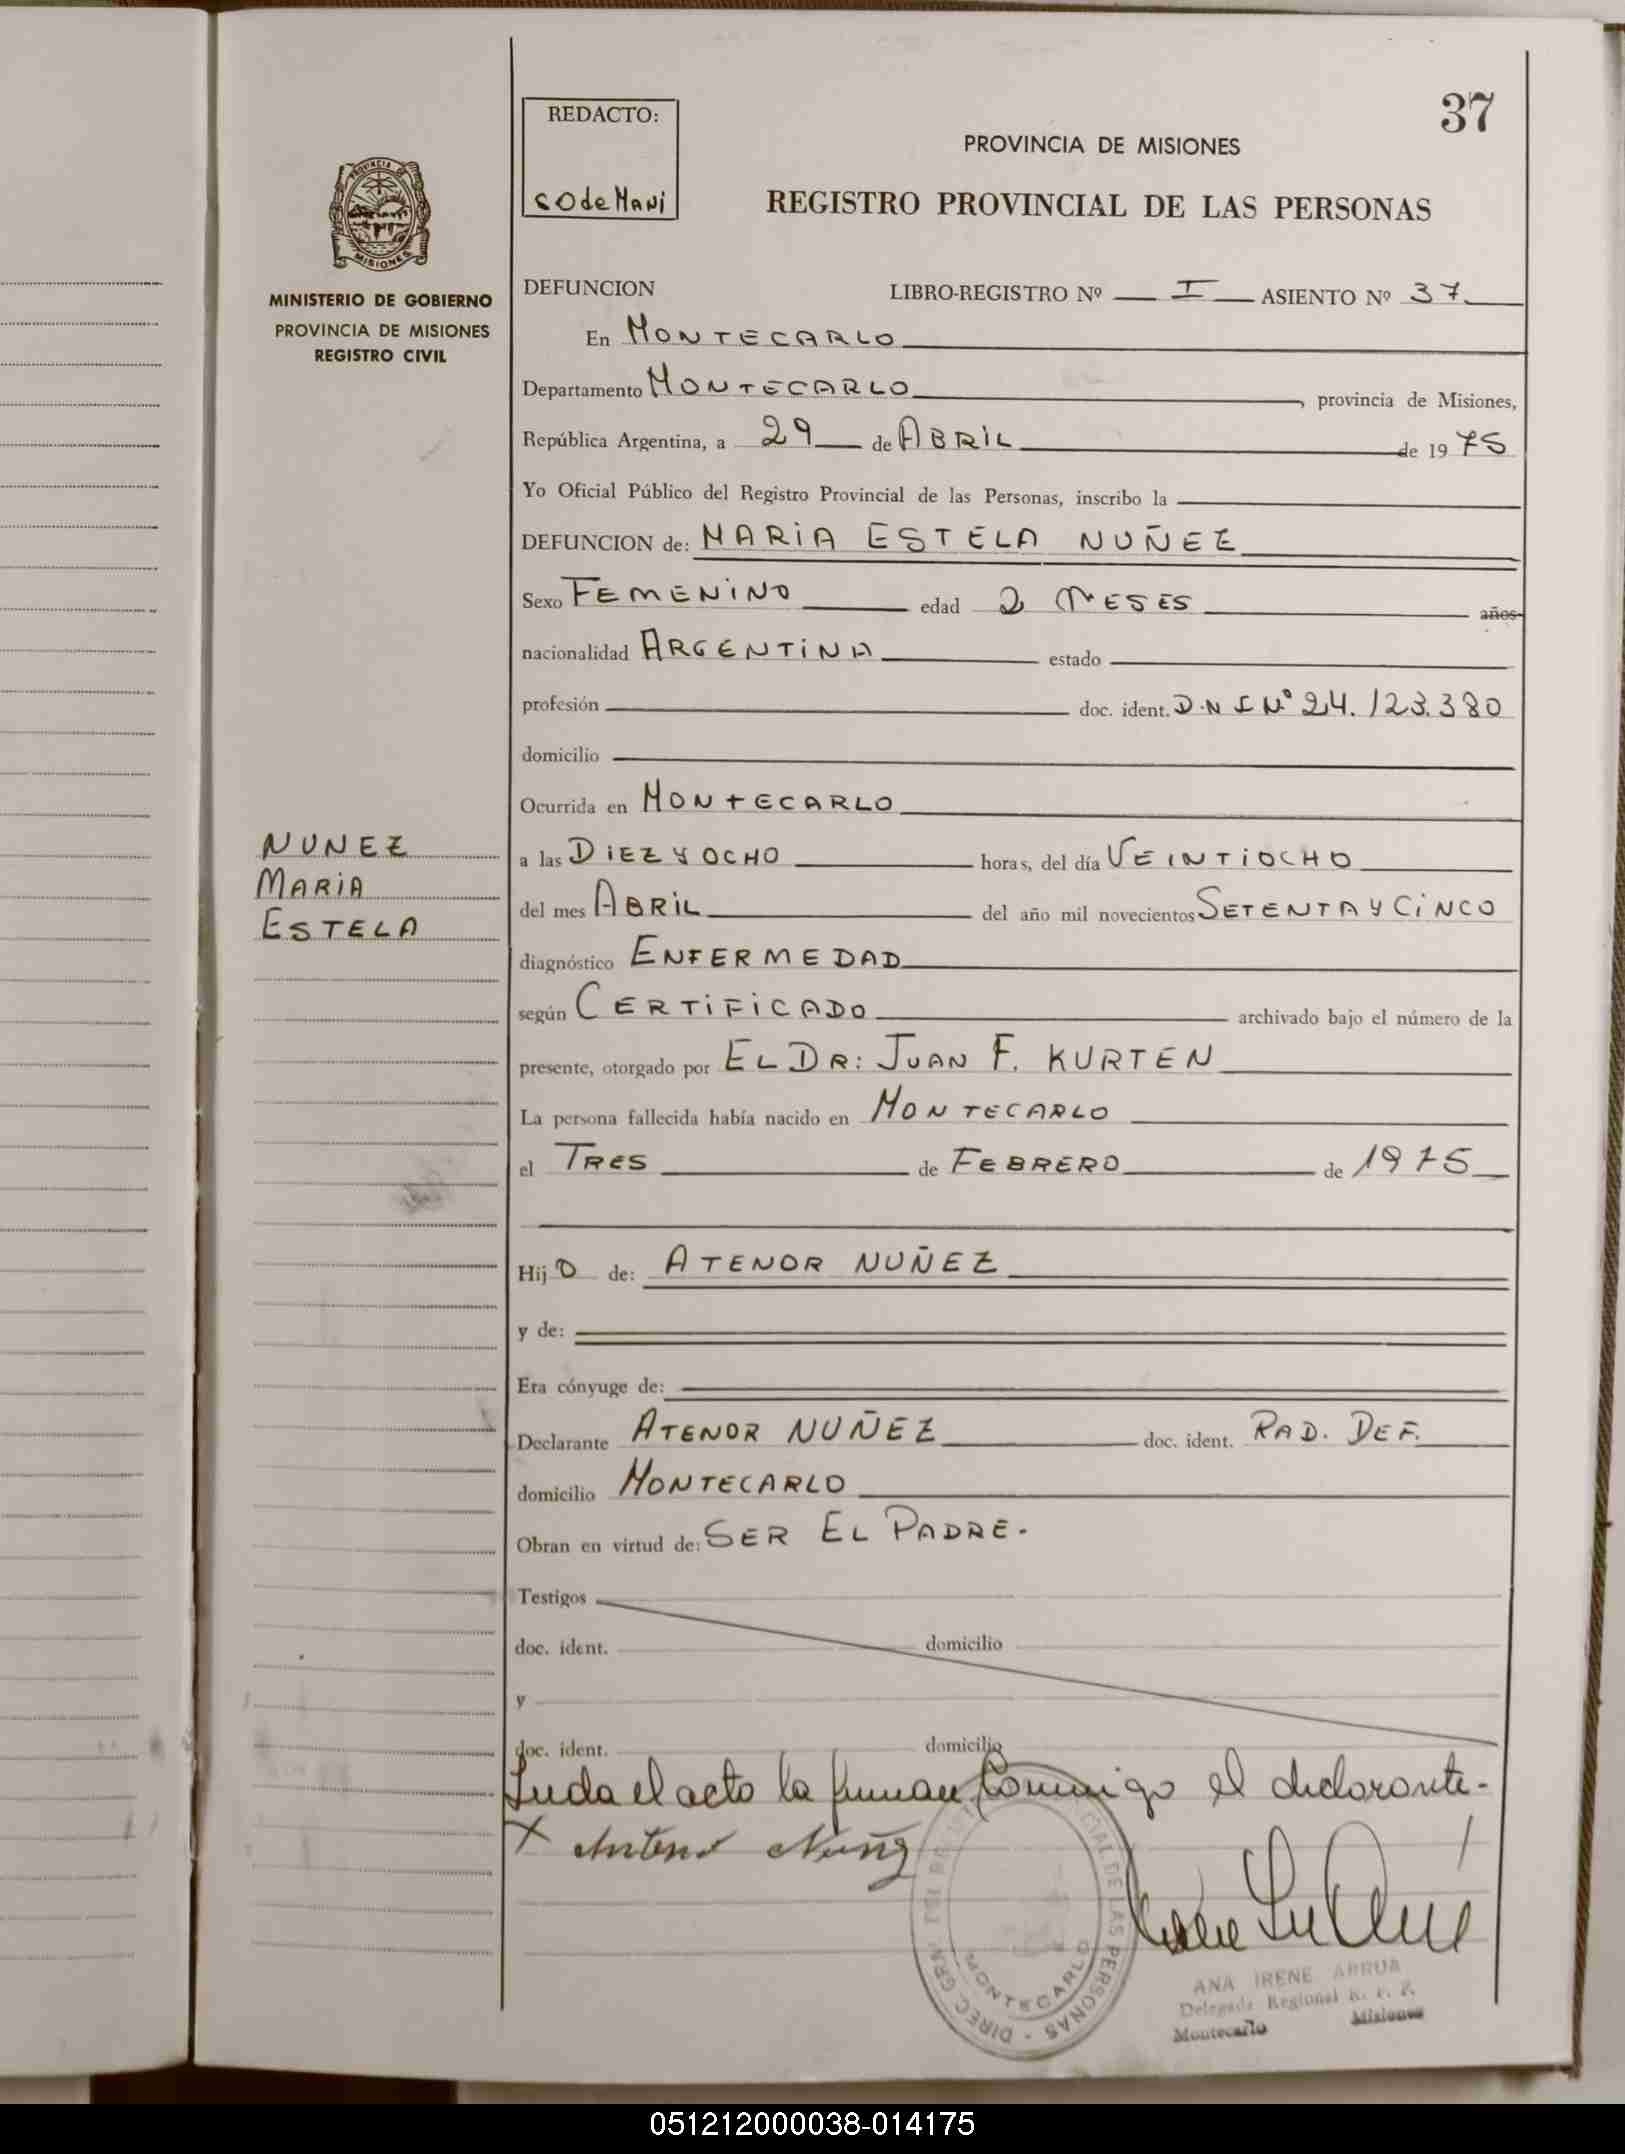 37
REDACTO:
PROVINCIA DE MISIONES
REGISTRO PROVINCIAL DE LAS PERSONAS
PROVINCIA DE
MISIONES
MINISTERIO DE GOBIERNO
PROVINCIA DE MISIONES
REGISTRO CIVIL
DEFUNCION LIBRO-REGISTRO Nº I ASIENTO Nº 37
En MONTECARLO
Departamento MONTECARLO, provincia de Misiones,
República Argentina, a 29 de ABRIL de 1975
Yo Oficial Público del Registro Provincial de las Personas, inscribo la
DEFUNCION de: MARIA ESTELA NUÑEZ
Sexo FEMENINO edad 2 MESES años
nacionalidad ARGENTINA estado
profesión doc. ident. D.N I Nº 24.123.380
domicilio
Ocurrida en MONTECARLO
NUNEZ
MARIA
ESTELA
a las DIEZ Y OCHO horas, del día VEINTIOCHO
del mes ABRIL del año mil novecientos SETENTA Y CINCO
diagnóstico ENFERMEDAD
según CERTIFICADO archivado bajo el número de la
presente, otorgado por EL DR: JUAN F. KURTEN
La persona fallecida había nacido en MONTECARLO
el TRES de FEBRERO de 1975
Hijo de: ATENOR NUÑEZ
y de:
Era cónyuge de:
Declarante ATENOR NUÑEZ doc. ident. RAD. DEF.
domicilio MONTECARLO
Obran en virtud de: SER EL PADRE.
Testigos
doc. ident. domicilio
y
doc. ident. domicilio
el acto la firman Conmigo el declarante-
X Nuñez
DIREC. GRAL. DE LAS PERSONAS
MONTECARLO
ANA IRENE ARRUA
Delegada Regional R. P. P.
Montecarlo Misiones
051212000038-014175